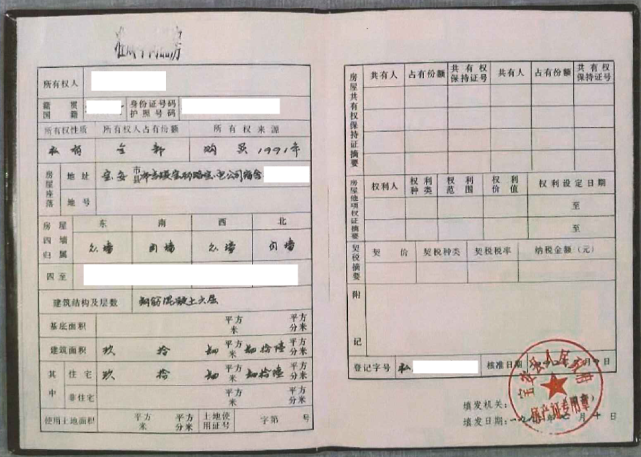 准购商品房
所有权人
籍贯 国籍 身份证号码 护照号码
所有权性质 所有权人占有份额 所有权来源
私有 全部 购买1991年
房屋座落 地址 宝安 市 县
地号
房屋四墙归属 东 南 西 北
自墙 自墙
四至
建筑结构及层数 钢筋混凝土六层
基底面积 平方米 平方分米
建筑面积 玖 拾 平方米 平方分米
其中 住宅 玖 拾 平方米 平方分米
非住宅 平方米 平方分米
使用土地面积 平方米 平方分米 土地使用证号 字第 号
房屋共有权保持证摘要 共有人 占有份额 共有权保持证号 共有人 占有份额 共有权保持证号
房屋他项权证摘要 权利人 权利种类 权利范围 权利价值 权利设定日期
至
至
契税摘要 契价 契税种类 契税税率 纳税金额(元)
附记
登记字号 私 核准日期
填发机关:
填发日期:
房产证专用章